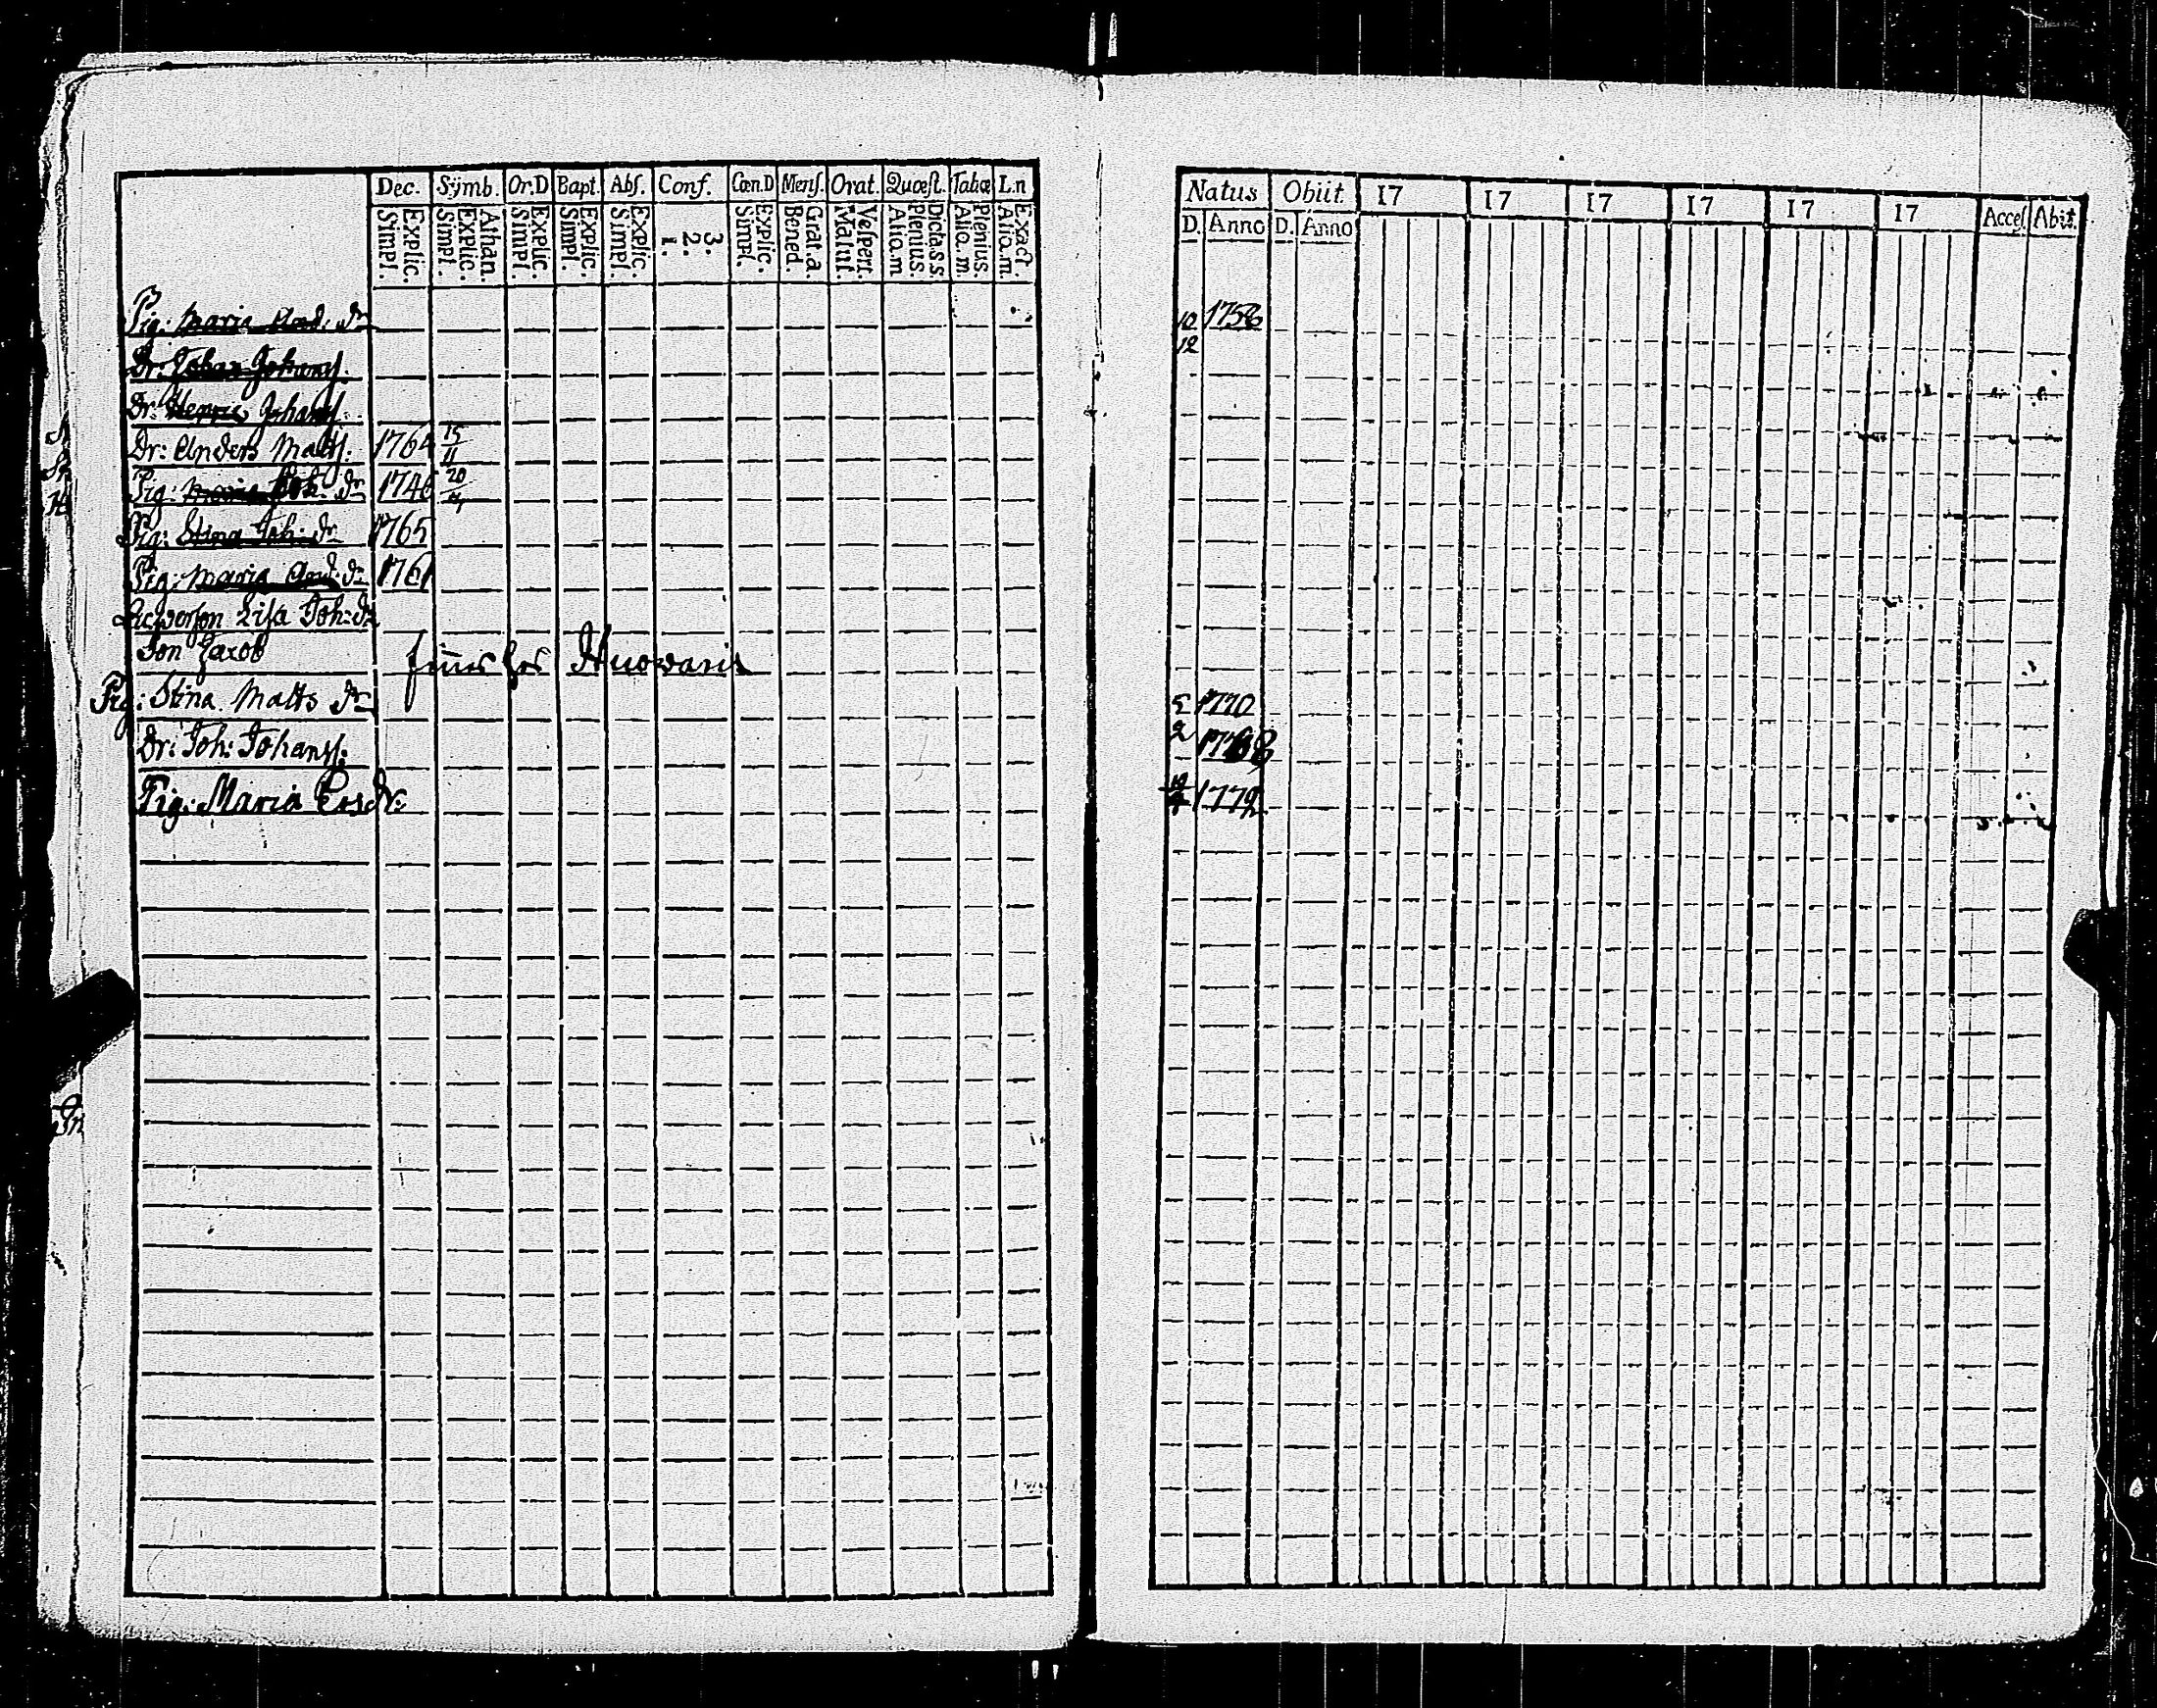 Dec. Sÿmb. Or.D Bapt. Abſ. Conf. Cœn.D Menſ. Orat. Quœſt. Tabœ L.n
Simpl. Explic. Simpl. Explic. Athan. Simpl. Explic. Simpl. Explic. Simpl. Explic. 1. 2. 3. Simpl. Explic. Bened. Grat.a. Matut. Veſpert. Alio.m Plenius. Dicta s.s. Alio.m. Plenius. Alio.m. Exact.
Pig: Maria And. dr
Dr: Johan Johanss.
Dr: Henric Johanss.
Dr: Anders Matts: 1764 15/11
Pig: Maria Joh: dr 1746 20/4
Pig: Stina Joh: dr 1765
Pig: Maria And: dr 1761
Lisa Joh: dr
Son Jacob
Pig: Stina Matts dr
Dr: Joh: Johanss:
Pig: Maria Ersdr:
Natus Obiit 17 17 17 17 17 17 Acceſ. Abit.
D. Anno D. Anno
10/12 1758
1770
1768
1772